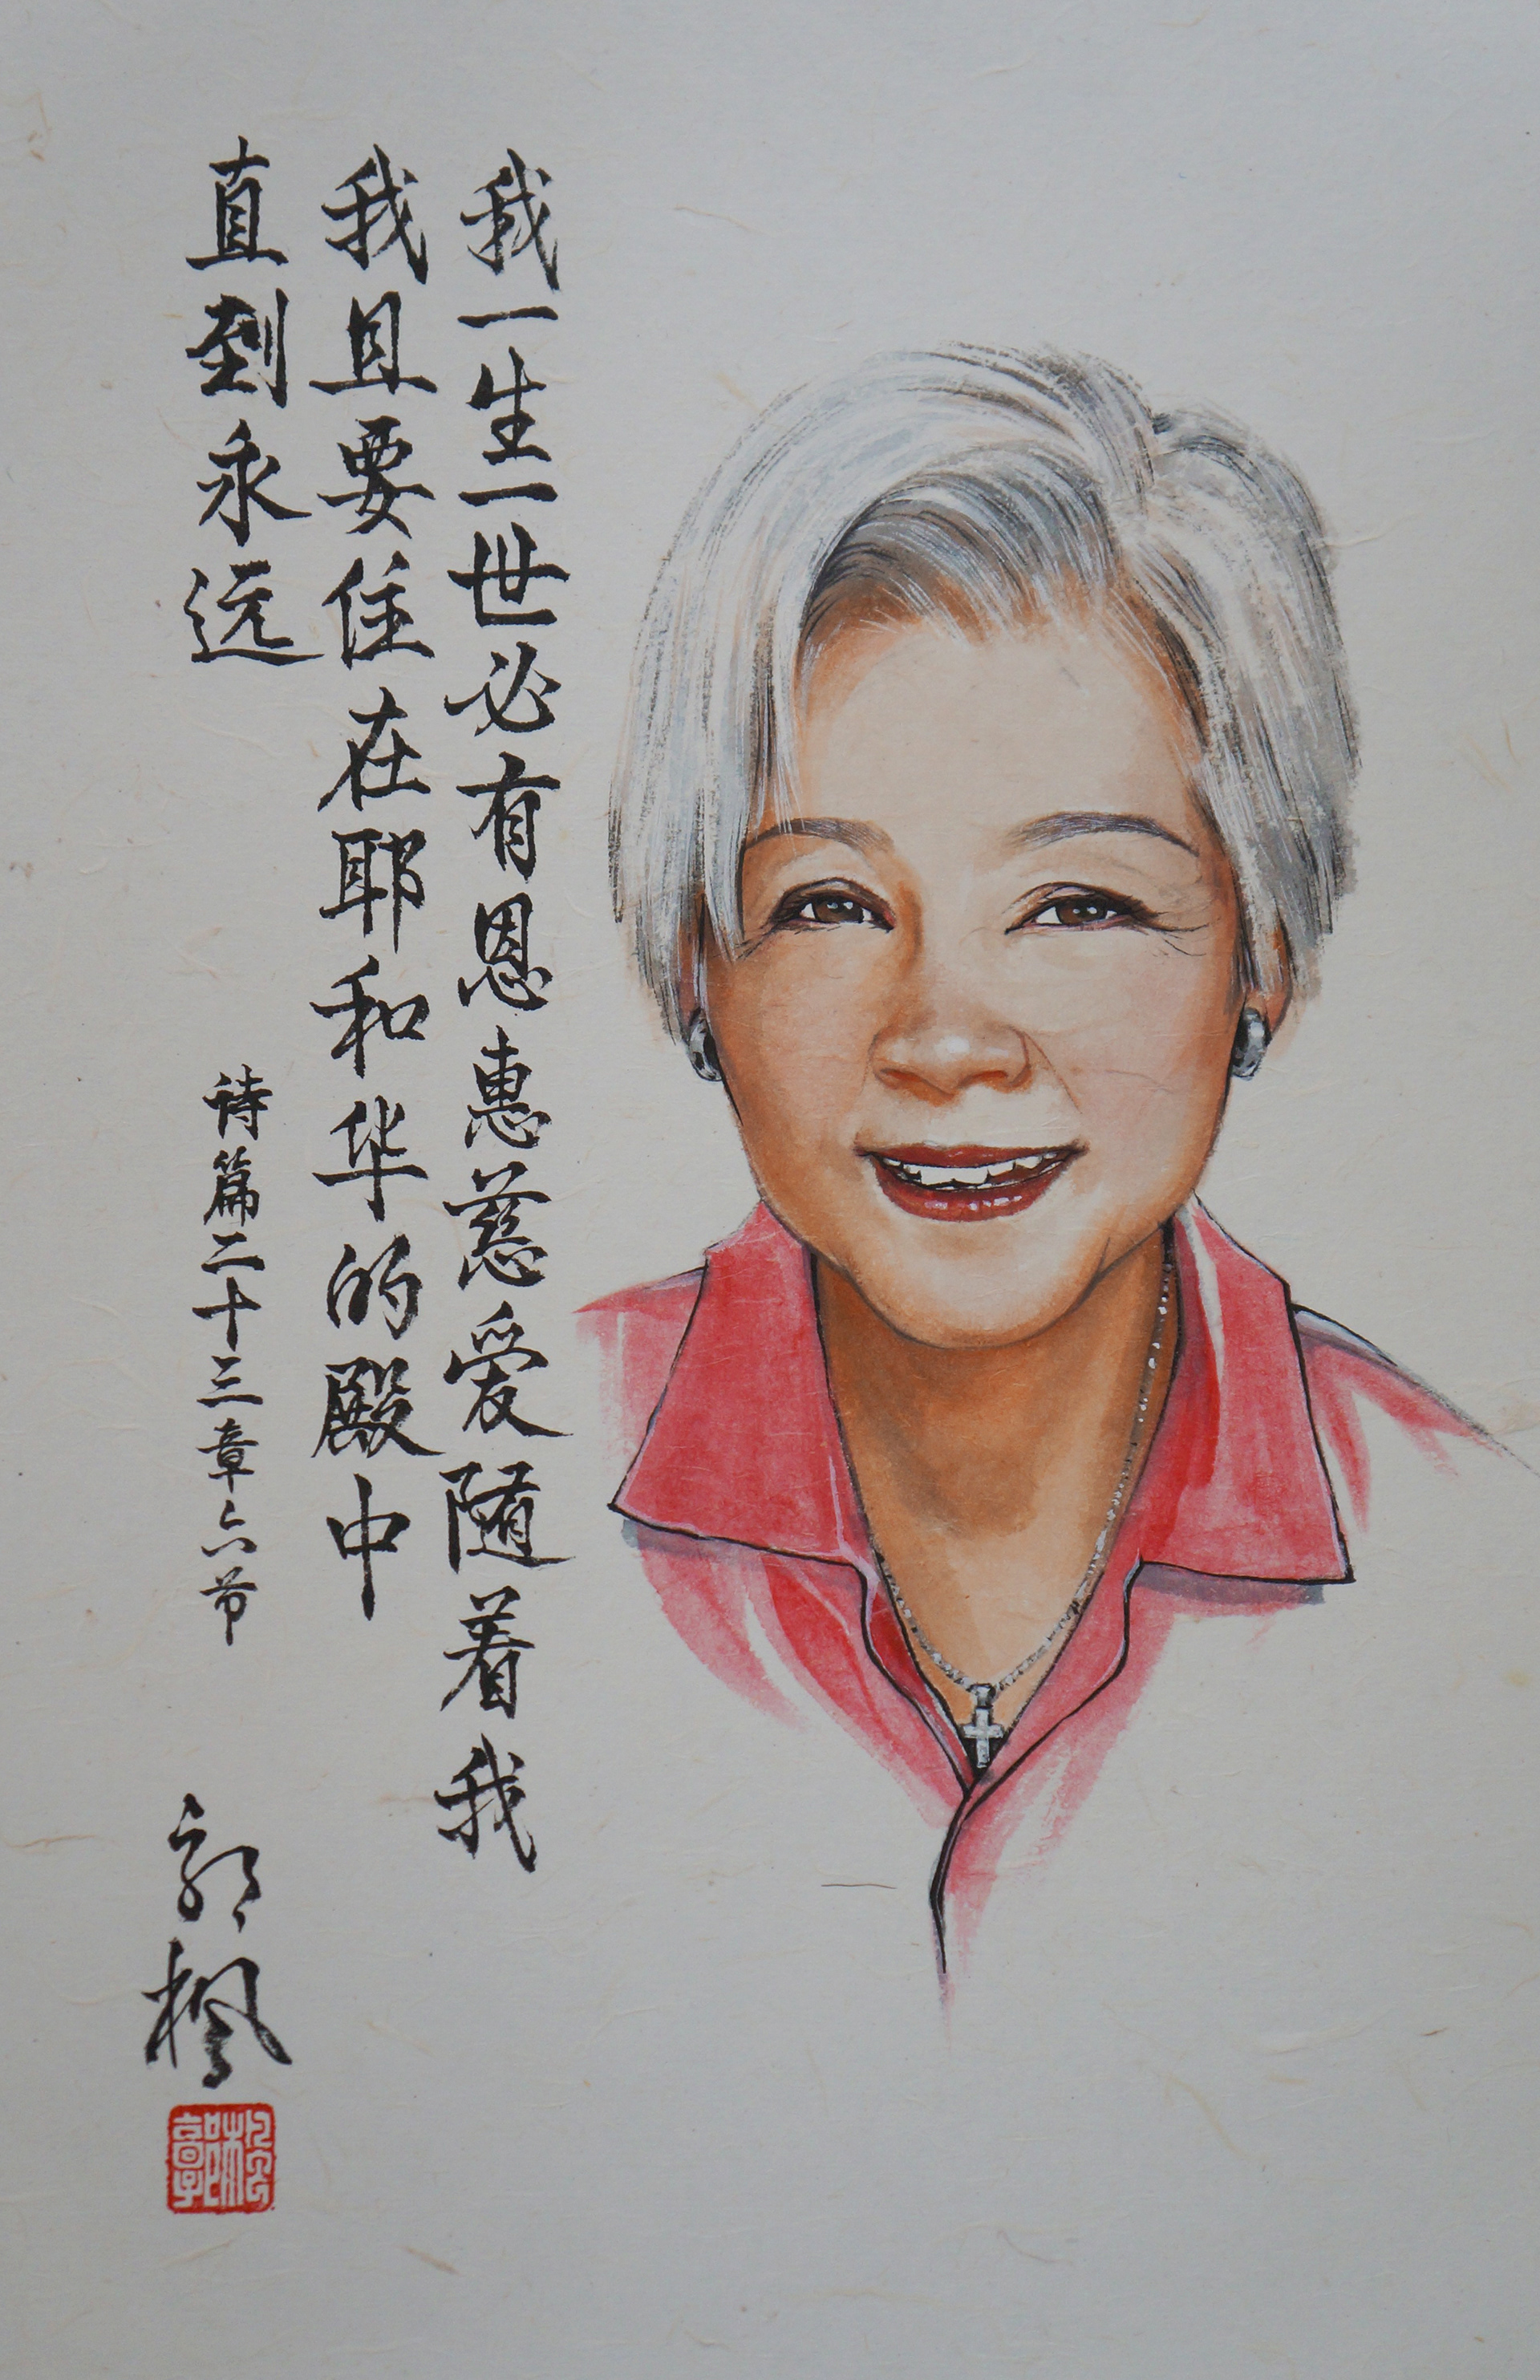 我一生一世必有恩惠慈爱随着我
我且要住在耶和华的殿中
直到永远
诗篇二十三章六节
郭枫